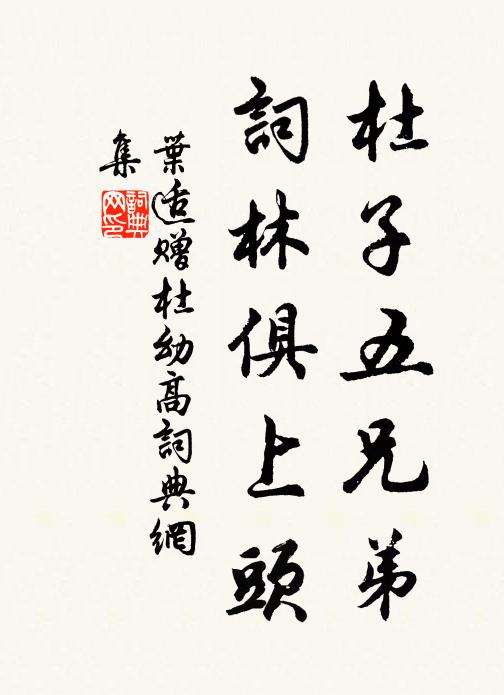 杜子五兄弟
詞林俱上頭
葉适贈杜幼高詞典網
集
詞典
网印